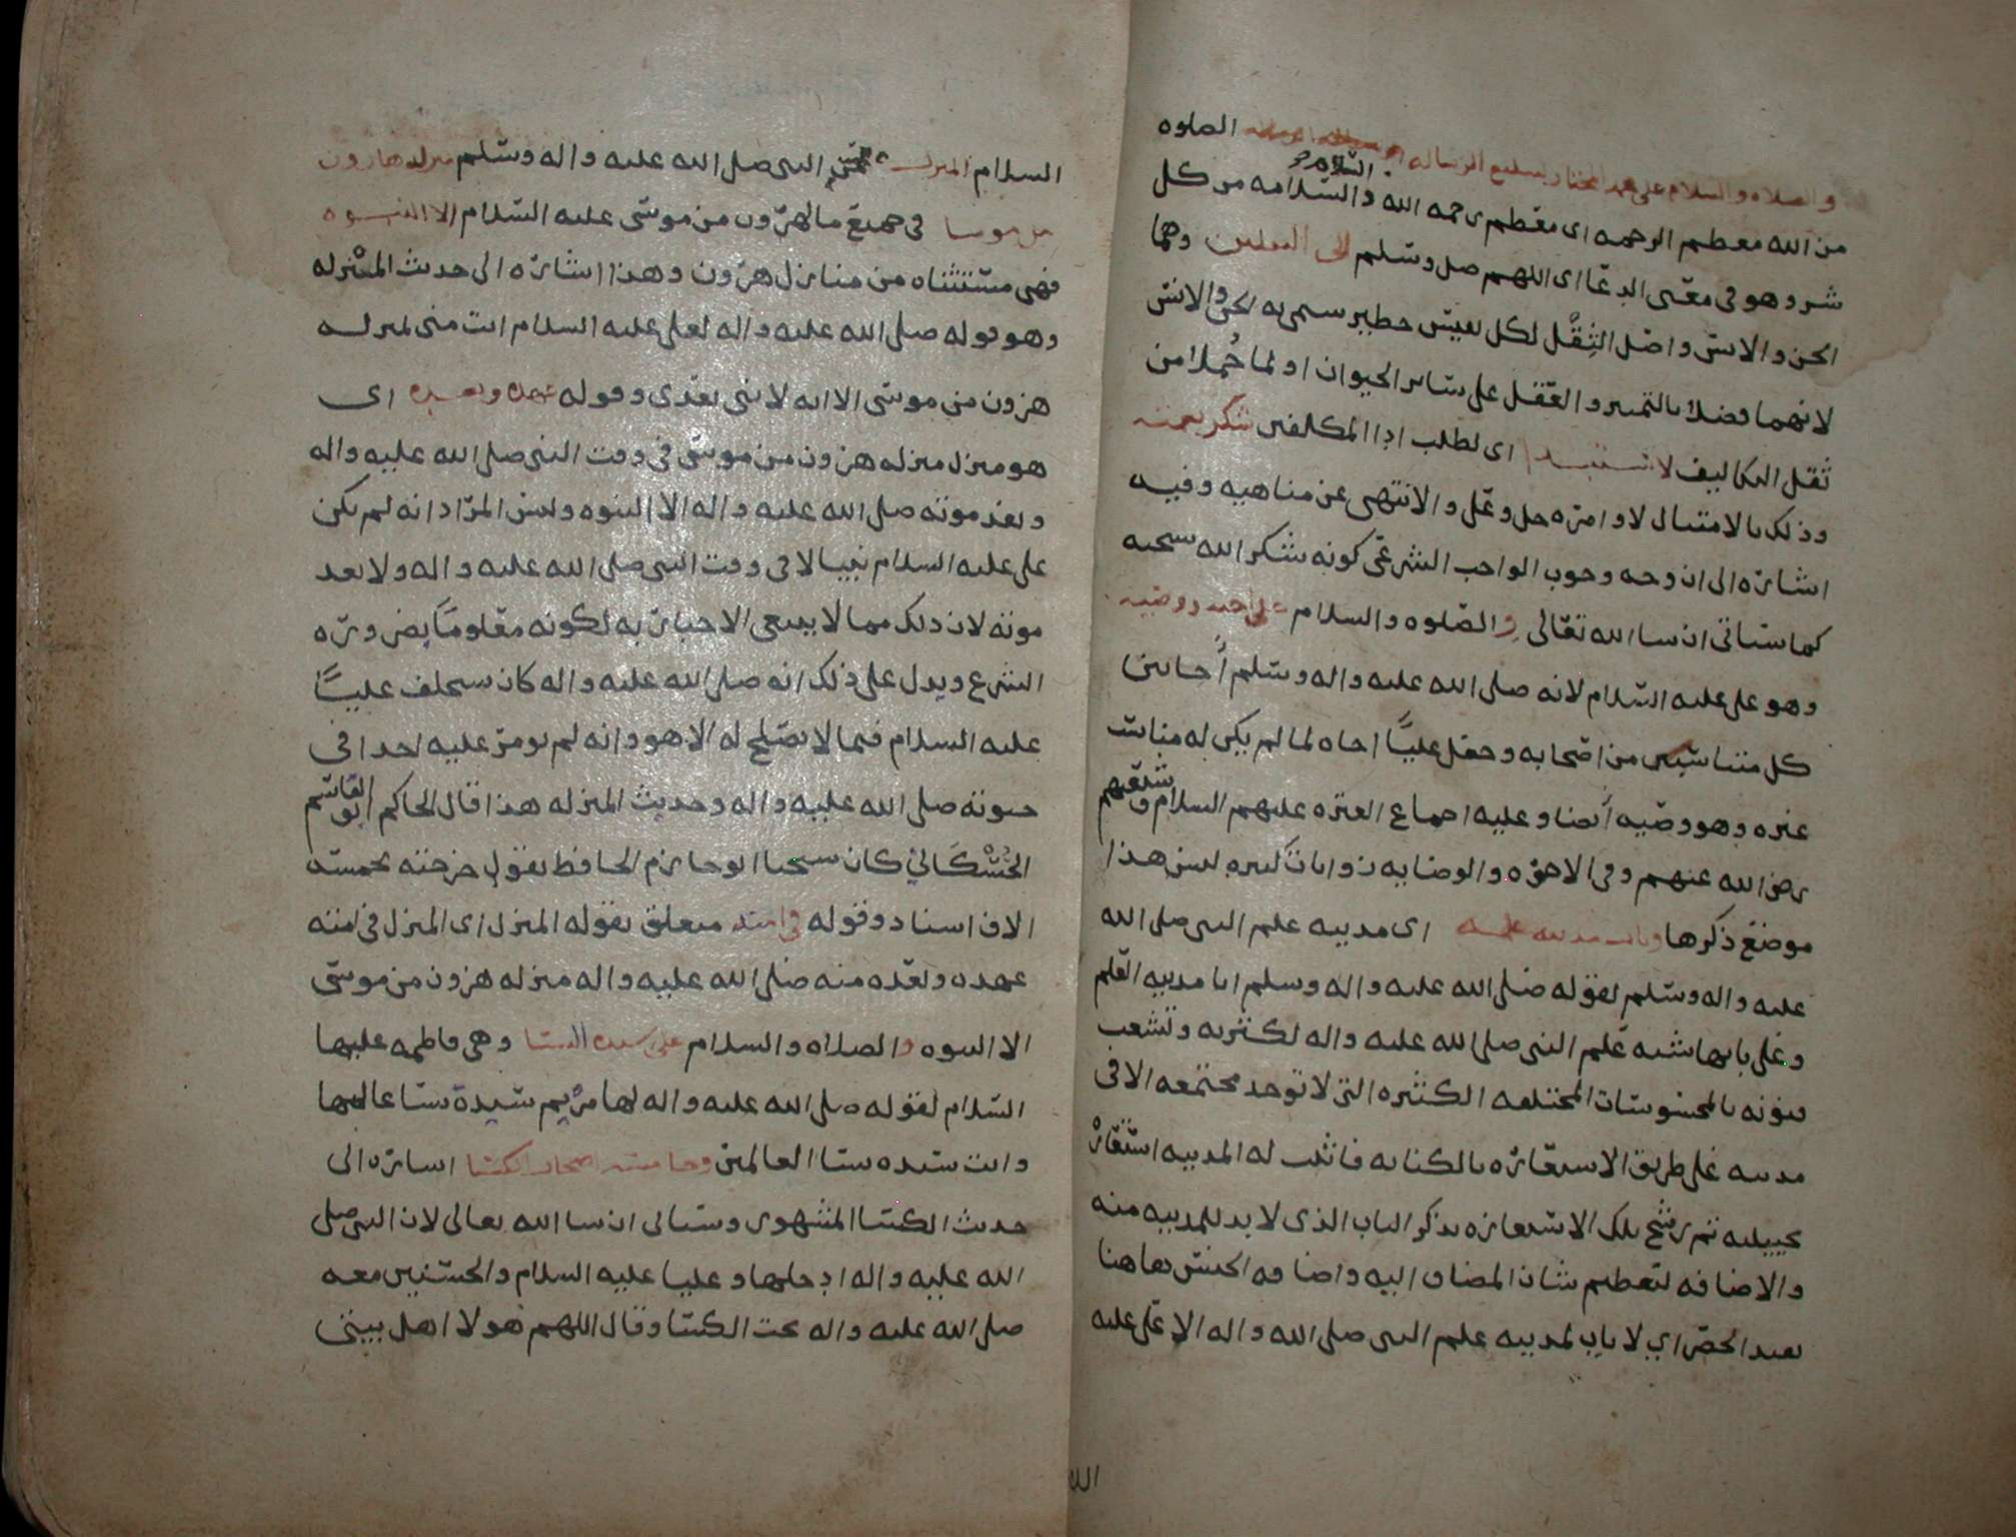 والصلاه والسلام على محمد المختار بتبليغ الرساله الصلوه
من الله معظم الرحمه اى معظم رحمه الله والسلام السلامه من كل
شر وهو في معنى الدعا اى اللهم صل وسلم الى الثقلين وهما
الجن والانس واصل الثقل لكل نفيس خطير سمى به الجن والانس
لانهما فضلا بالتميز والعقل على ساير الحيوان او لما حُملا من
ثقل التكاليف لاستيدا اى لطلب ادا المكلفين شكر نعمته
وذلك بالامتثال لاوامره جل وعلى والانتهى عن مناهيه وفيه
اشاره الى ان وجه وجوب الواجب الشرعى كونه شكر الله سبحنه
كما سياتى ان سا الله تعالى والصلوه والسلام على اخيه ووصيه
وهو على عليه السلام لانه صلى الله عليه واله وسلم أخا بين
كل متناسبين من اصحابه وجعل عليًّا اخاه لما لم يكن له مناسب
غيره وهو وصيه أيضا وعليه اجماع العتره عليهم السلام وشيعتهم
رضى الله عنهم وفى الاخوه والوصايه روايات كثيره ليس هذا
موضع ذكرها وباب مدينه علمه اى مدينه علم النبى صلى الله
عليه واله وسلم لقوله صلى الله عليه واله وسلم انا مدينه العلم
وعلى بابها شبه علم النبى صلى الله عليه واله لكثرته وتشعب
فنونه بالمحسوسات المختلفه الكثيره التى لا توجد مجتمعه الا فى
مدينه على طريق الاستعاره بالكنايه فاثبت له المدينه استعاره
تخييليه ثم رشح تلك الاستعاره بذكر الباب الذى لا بد للمدينه منه
والاضافه لتعظيم شان المضاف اليه واضافه الجنس هاهنا
تفيد الحصر اي لا باب لمدينه علم النبى صلى الله واله الا على عليه
السلام المنزل من النبى صلى الله عليه واله وسلم منزله هارون
من موسا فى جميع ما لهرون من موسى عليه السلام الا النبوه
فهى مستثناه من منازل هرون وهذا اشاره الى حديث المنزله
وهو قوله صلى الله عليه واله لعلى عليه السلام انت منى بمنزله
هرون من موسى الا انه لا نبى بعدى وقوله عهده وبعده اى
هو منزل منزله هرون من موسى فى وقت النبى صلى الله عليه واله
وبعد موته صلى الله عليه واله الا النبوه وليس المراد انه لم يكن
على عليه السلام نبيا لا فى وقت النبى صلى الله عليه واله ولا بعد
موته لان ذلك مما لا ينبغى الاخبار به لكونه معلومًا بضروره
الشرع ويدل على ذلك انه صلى الله عليه واله كان يستخلف عليًّا
عليه السلام فيما لا يصلح له الا هو وانه لم يومر عليه احدا فى
حيوته صلى الله عليه واله وحديث المنزله هذا قال الحاكم ابو القاسم
الحُسْكَاني كان شيخنا ابو حازم الحافظ يقول خرجته بخمسه
الاف اسناد وقوله فى امته متعلق بقوله المنزل اى المنزل فى امته
عهده وبعده منه صلى الله عليه واله منزله هرون من موسى
الا النبوه والصلاه والسلام على سيده النسا وهى فاطمه عليها
السلام لقوله صلى الله عليه واله لها مريم سيدة نسا عالمها
وانت سيده نسا العالمين وخامسه اصحاب الكسا اشاره الى
حديث الكسا المشهور وسياتى ان سا الله تعالى لان النبى صلى
الله عليه واله ادخلها وعليا عليه السلام والحسنين معه
صلى الله عليه واله تحت الكسا وقال اللهم هولا اهل بيتى